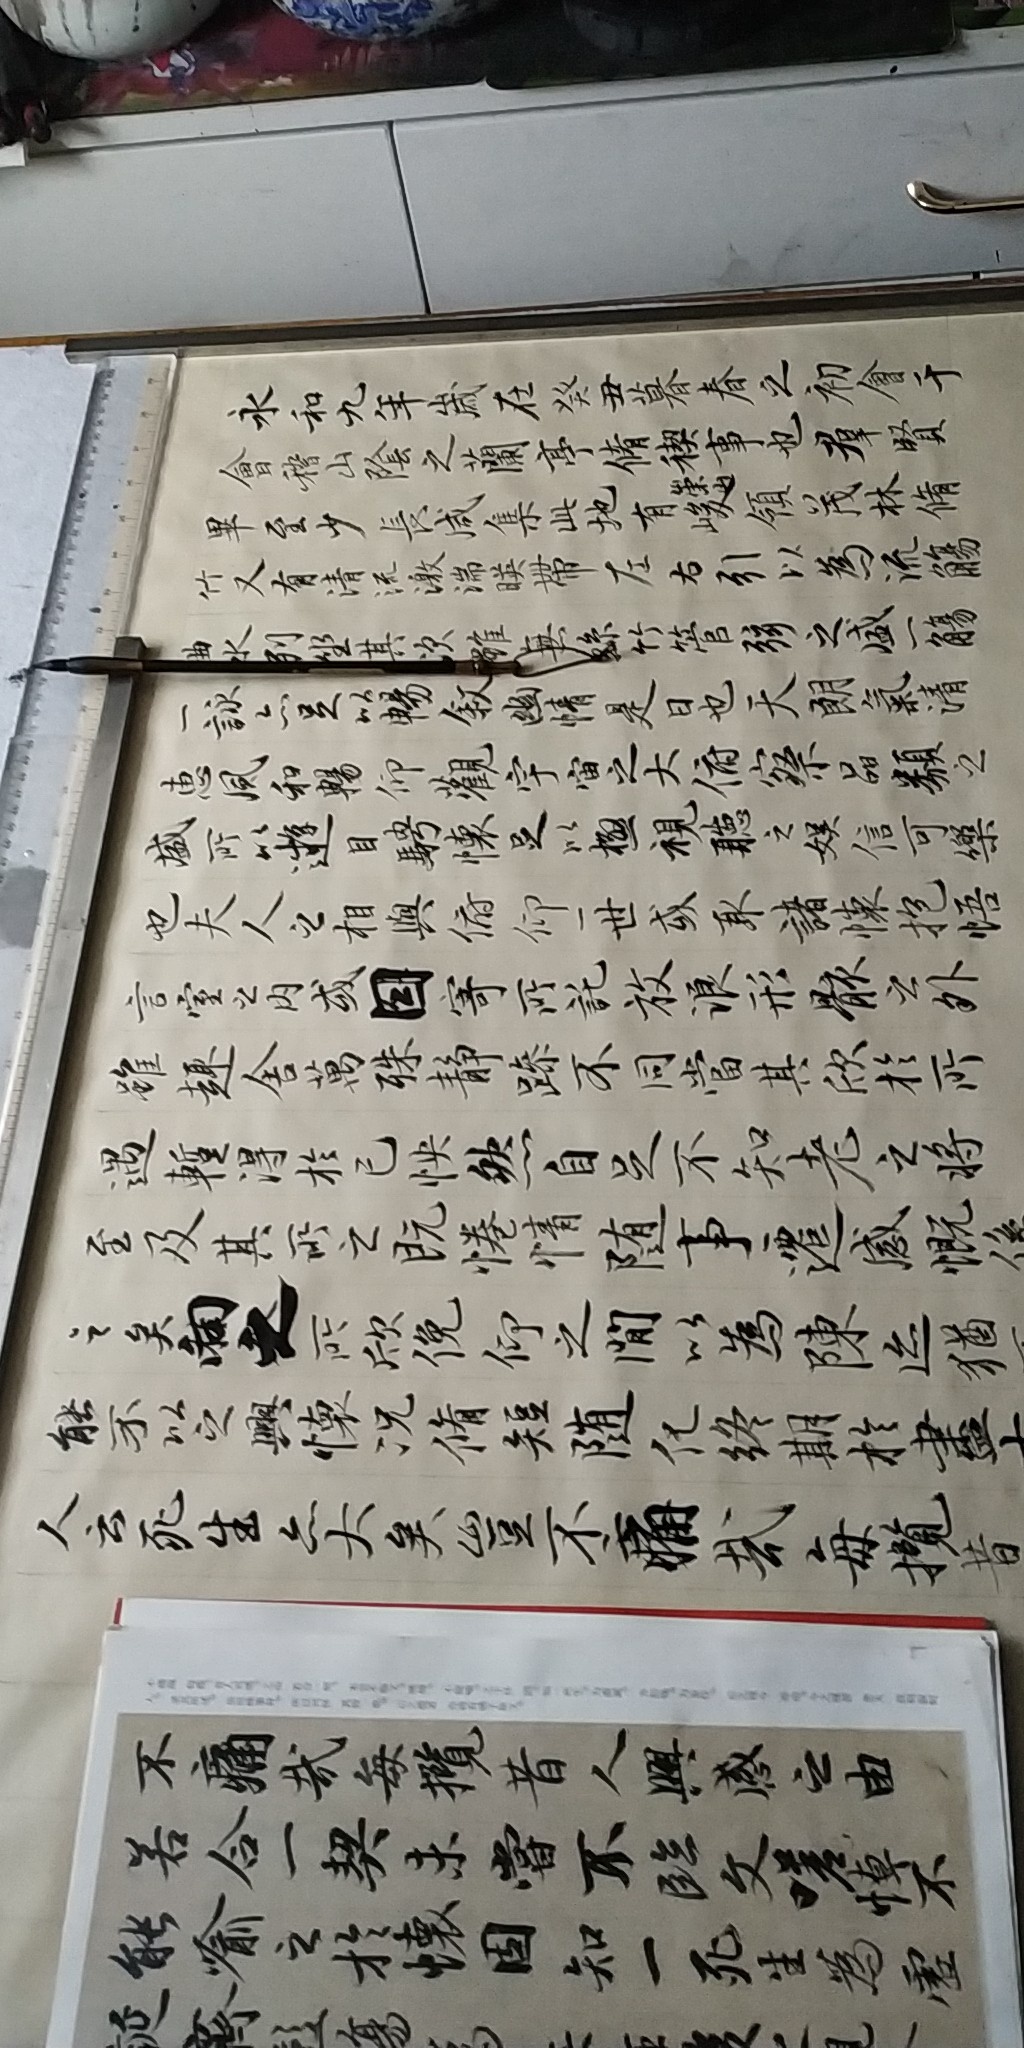 永和九年歲在癸丑暮春之初會于
會稽山陰之蘭亭脩稧事也群賢
畢至少長咸集此地有崇山峻領茂林脩
竹又有清流激湍暎帶左右引以為流觴
曲水列坐其次雖無絲竹管弦之盛一觴
一詠亦足以暢叙幽情是日也天朗氣清
惠風和暢仰觀宇宙之大俯察品類之
盛所以遊目騁懷足以極視聽之娛信可樂
也夫人之相與俯仰一世或取諸懷抱悟
言室之內或因寄所託放浪形骸之外
雖趣舍萬殊靜躁不同當其欣於所
遇暫得於己怏然自足不知老之將
至及其所之既惓情隨事遷感慨係
之矣向之所欣俛仰之間以為陳迹猶
能不以之興懷況脩短隨化終期於盡
人云死生亦大矣豈不痛哉每攬昔
不痛哉每攬昔人興感之由
若合一契未嘗不臨文嗟悼不
能喻之於懷固知一死生為虛